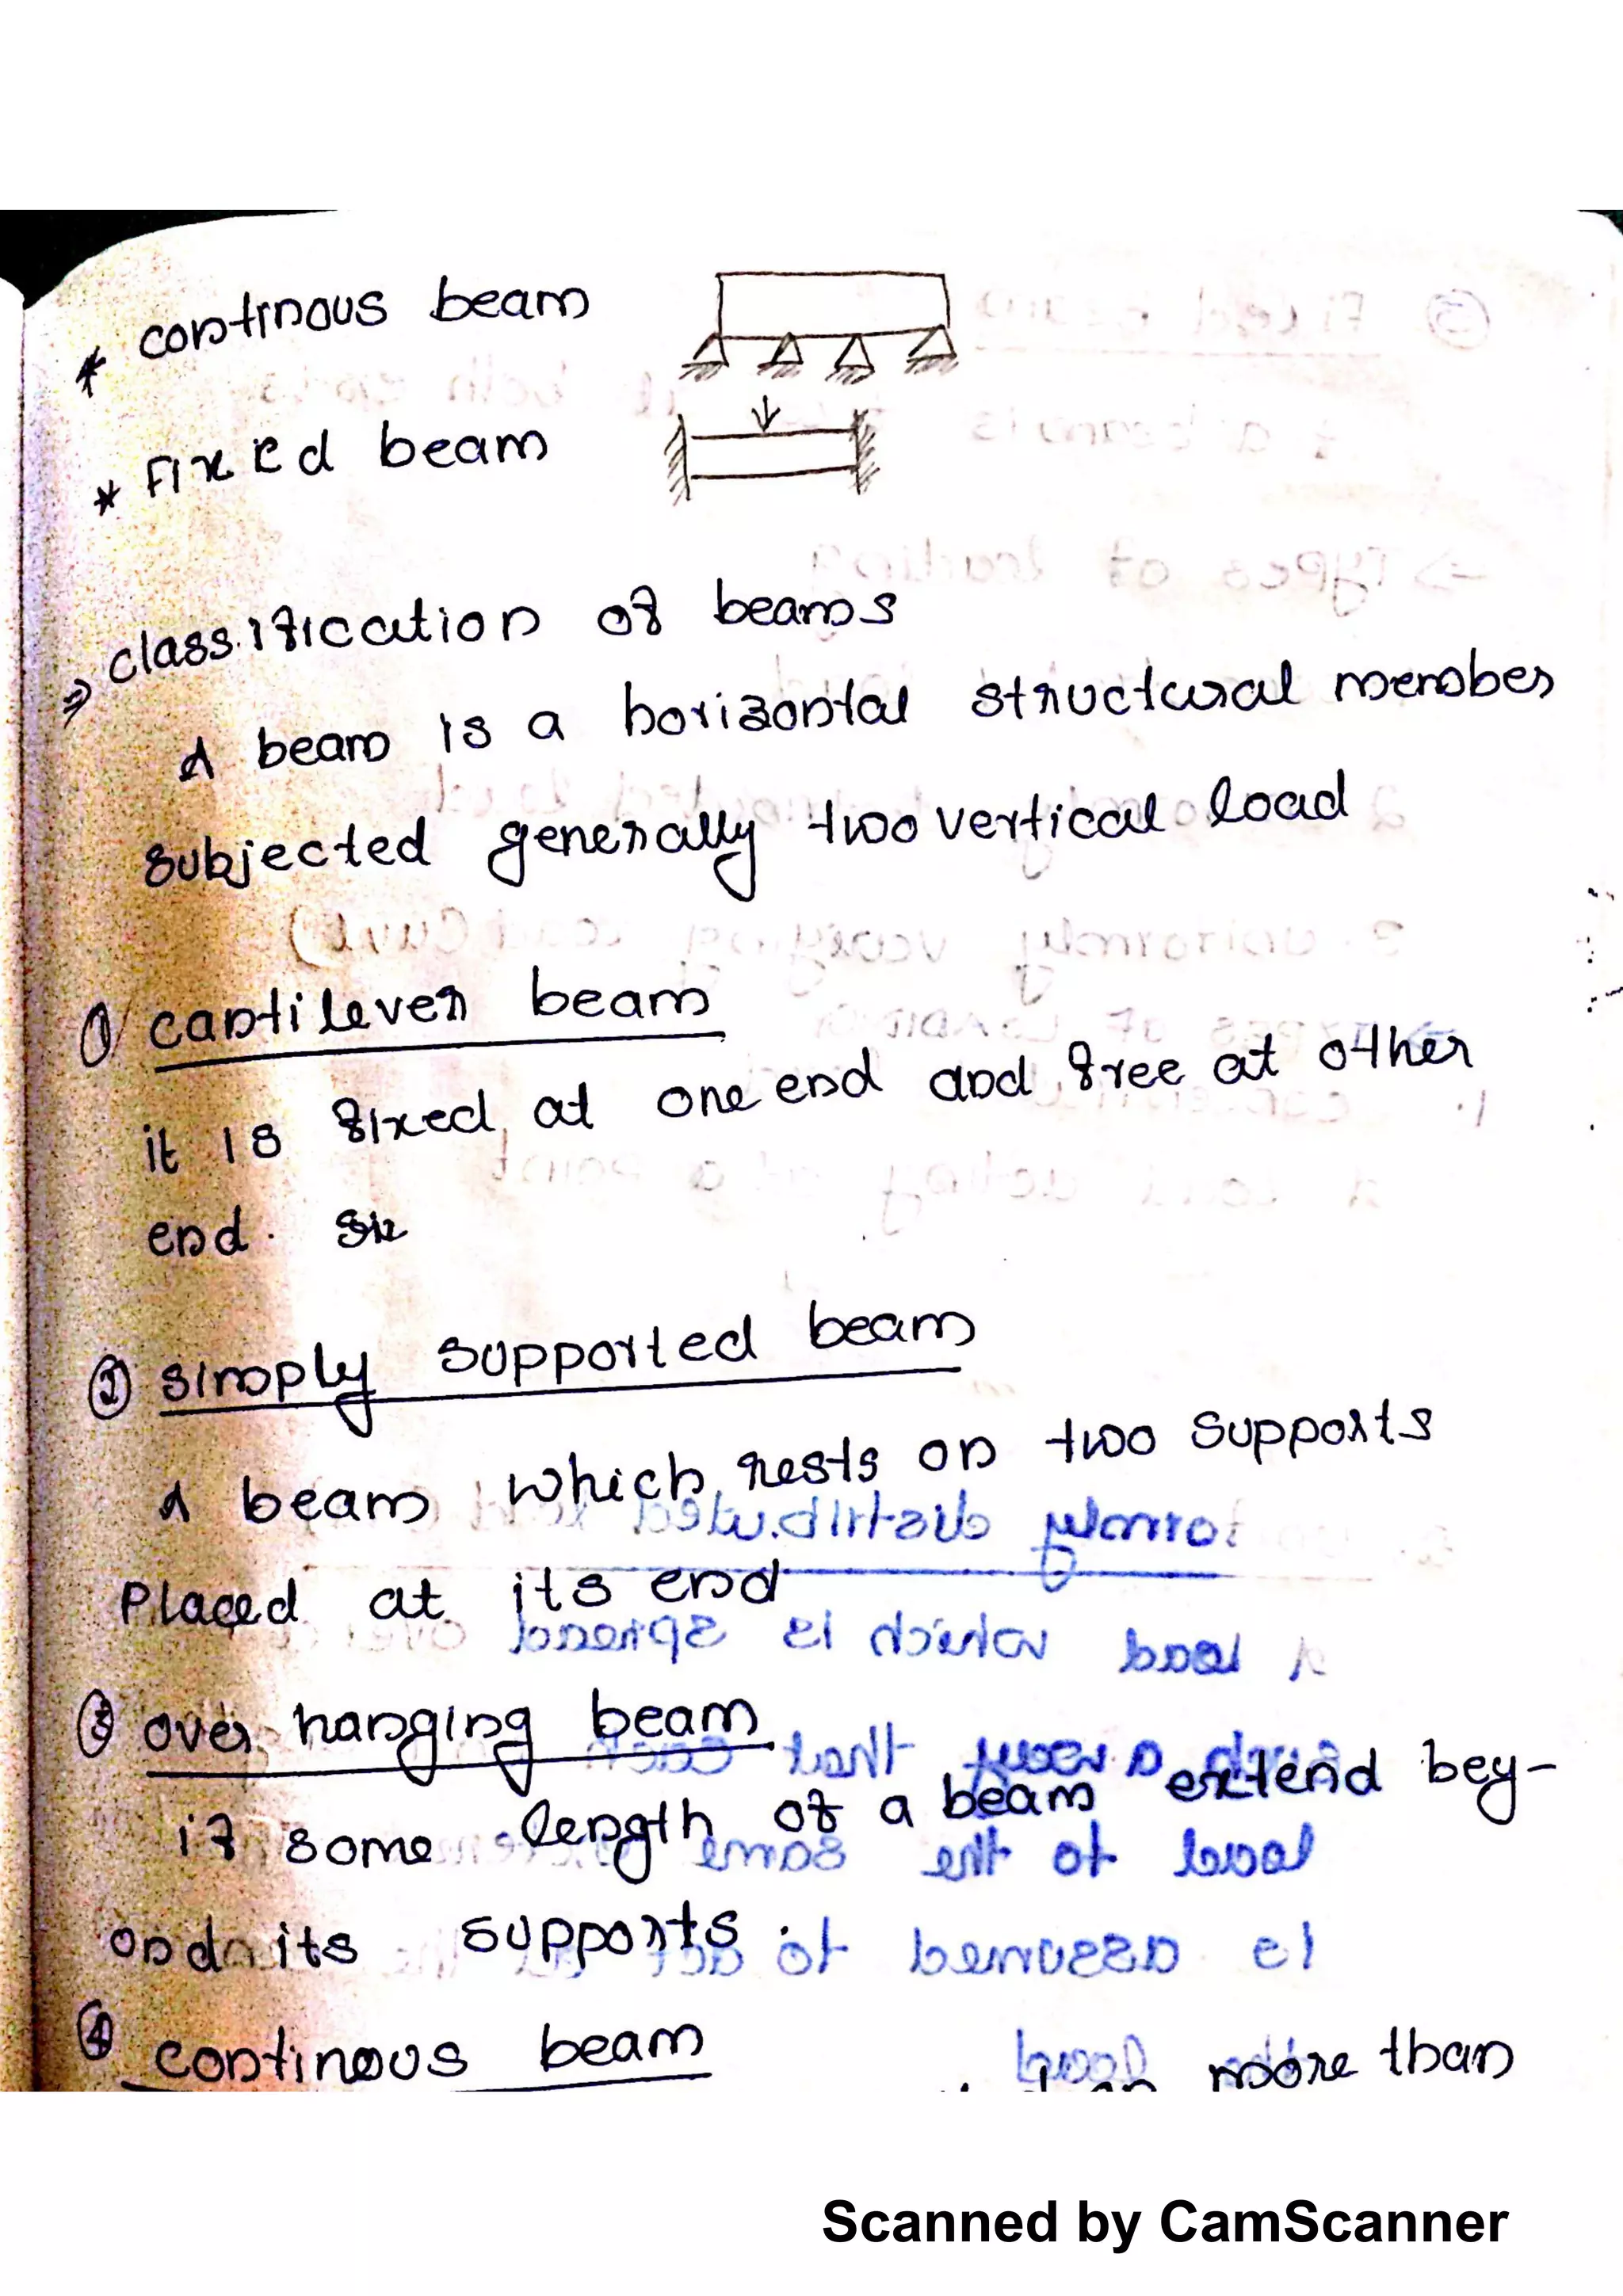 * continous beam
* Fixed beam
⇒ classification of beams
A beam is a horizontal structural member
subjected generally two vertical load
① cantilever beam
it is fixed at one end and free at other
end.
② simply supported beam
A beam which rests on two supports
Placed at its end
③ over hanging beam
if some length of a beam extend bey-
ond its supports.
④ continous beam
more than
Scanned by CamScanner